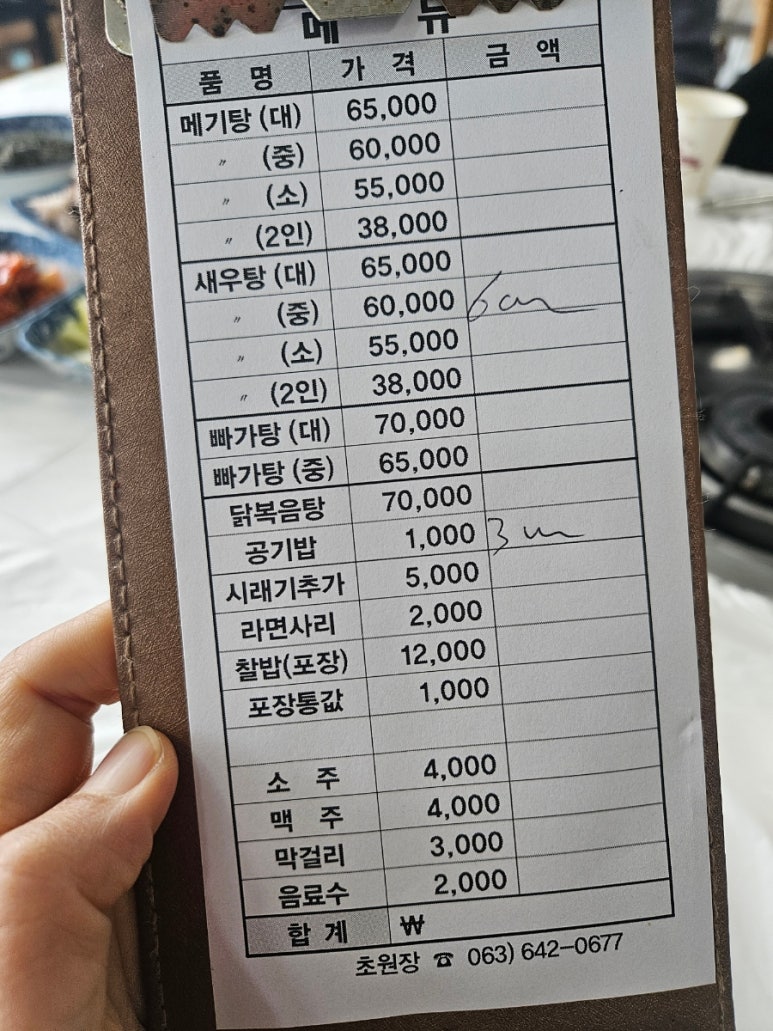 메 뉴
품 명 가 격 금 액
메기탕 (대) 65,000
〃 (중) 60,000
〃 (소) 55,000
〃 (2인) 38,000
새우탕 (대) 65,000
〃 (중) 60,000
〃 (소) 55,000
〃 (2인) 38,000
빠가탕 (대) 70,000
빠가탕 (중) 65,000
닭복음탕 70,000
공기밥 1,000 3
시래기추가 5,000
라면사리 2,000
찰밥(포장) 12,000
포장통값 1,000
소 주 4,000
맥 주 4,000
막걸리 3,000
음료수 2,000
합 계 ₩
초원장 ☎ 063) 642-0677